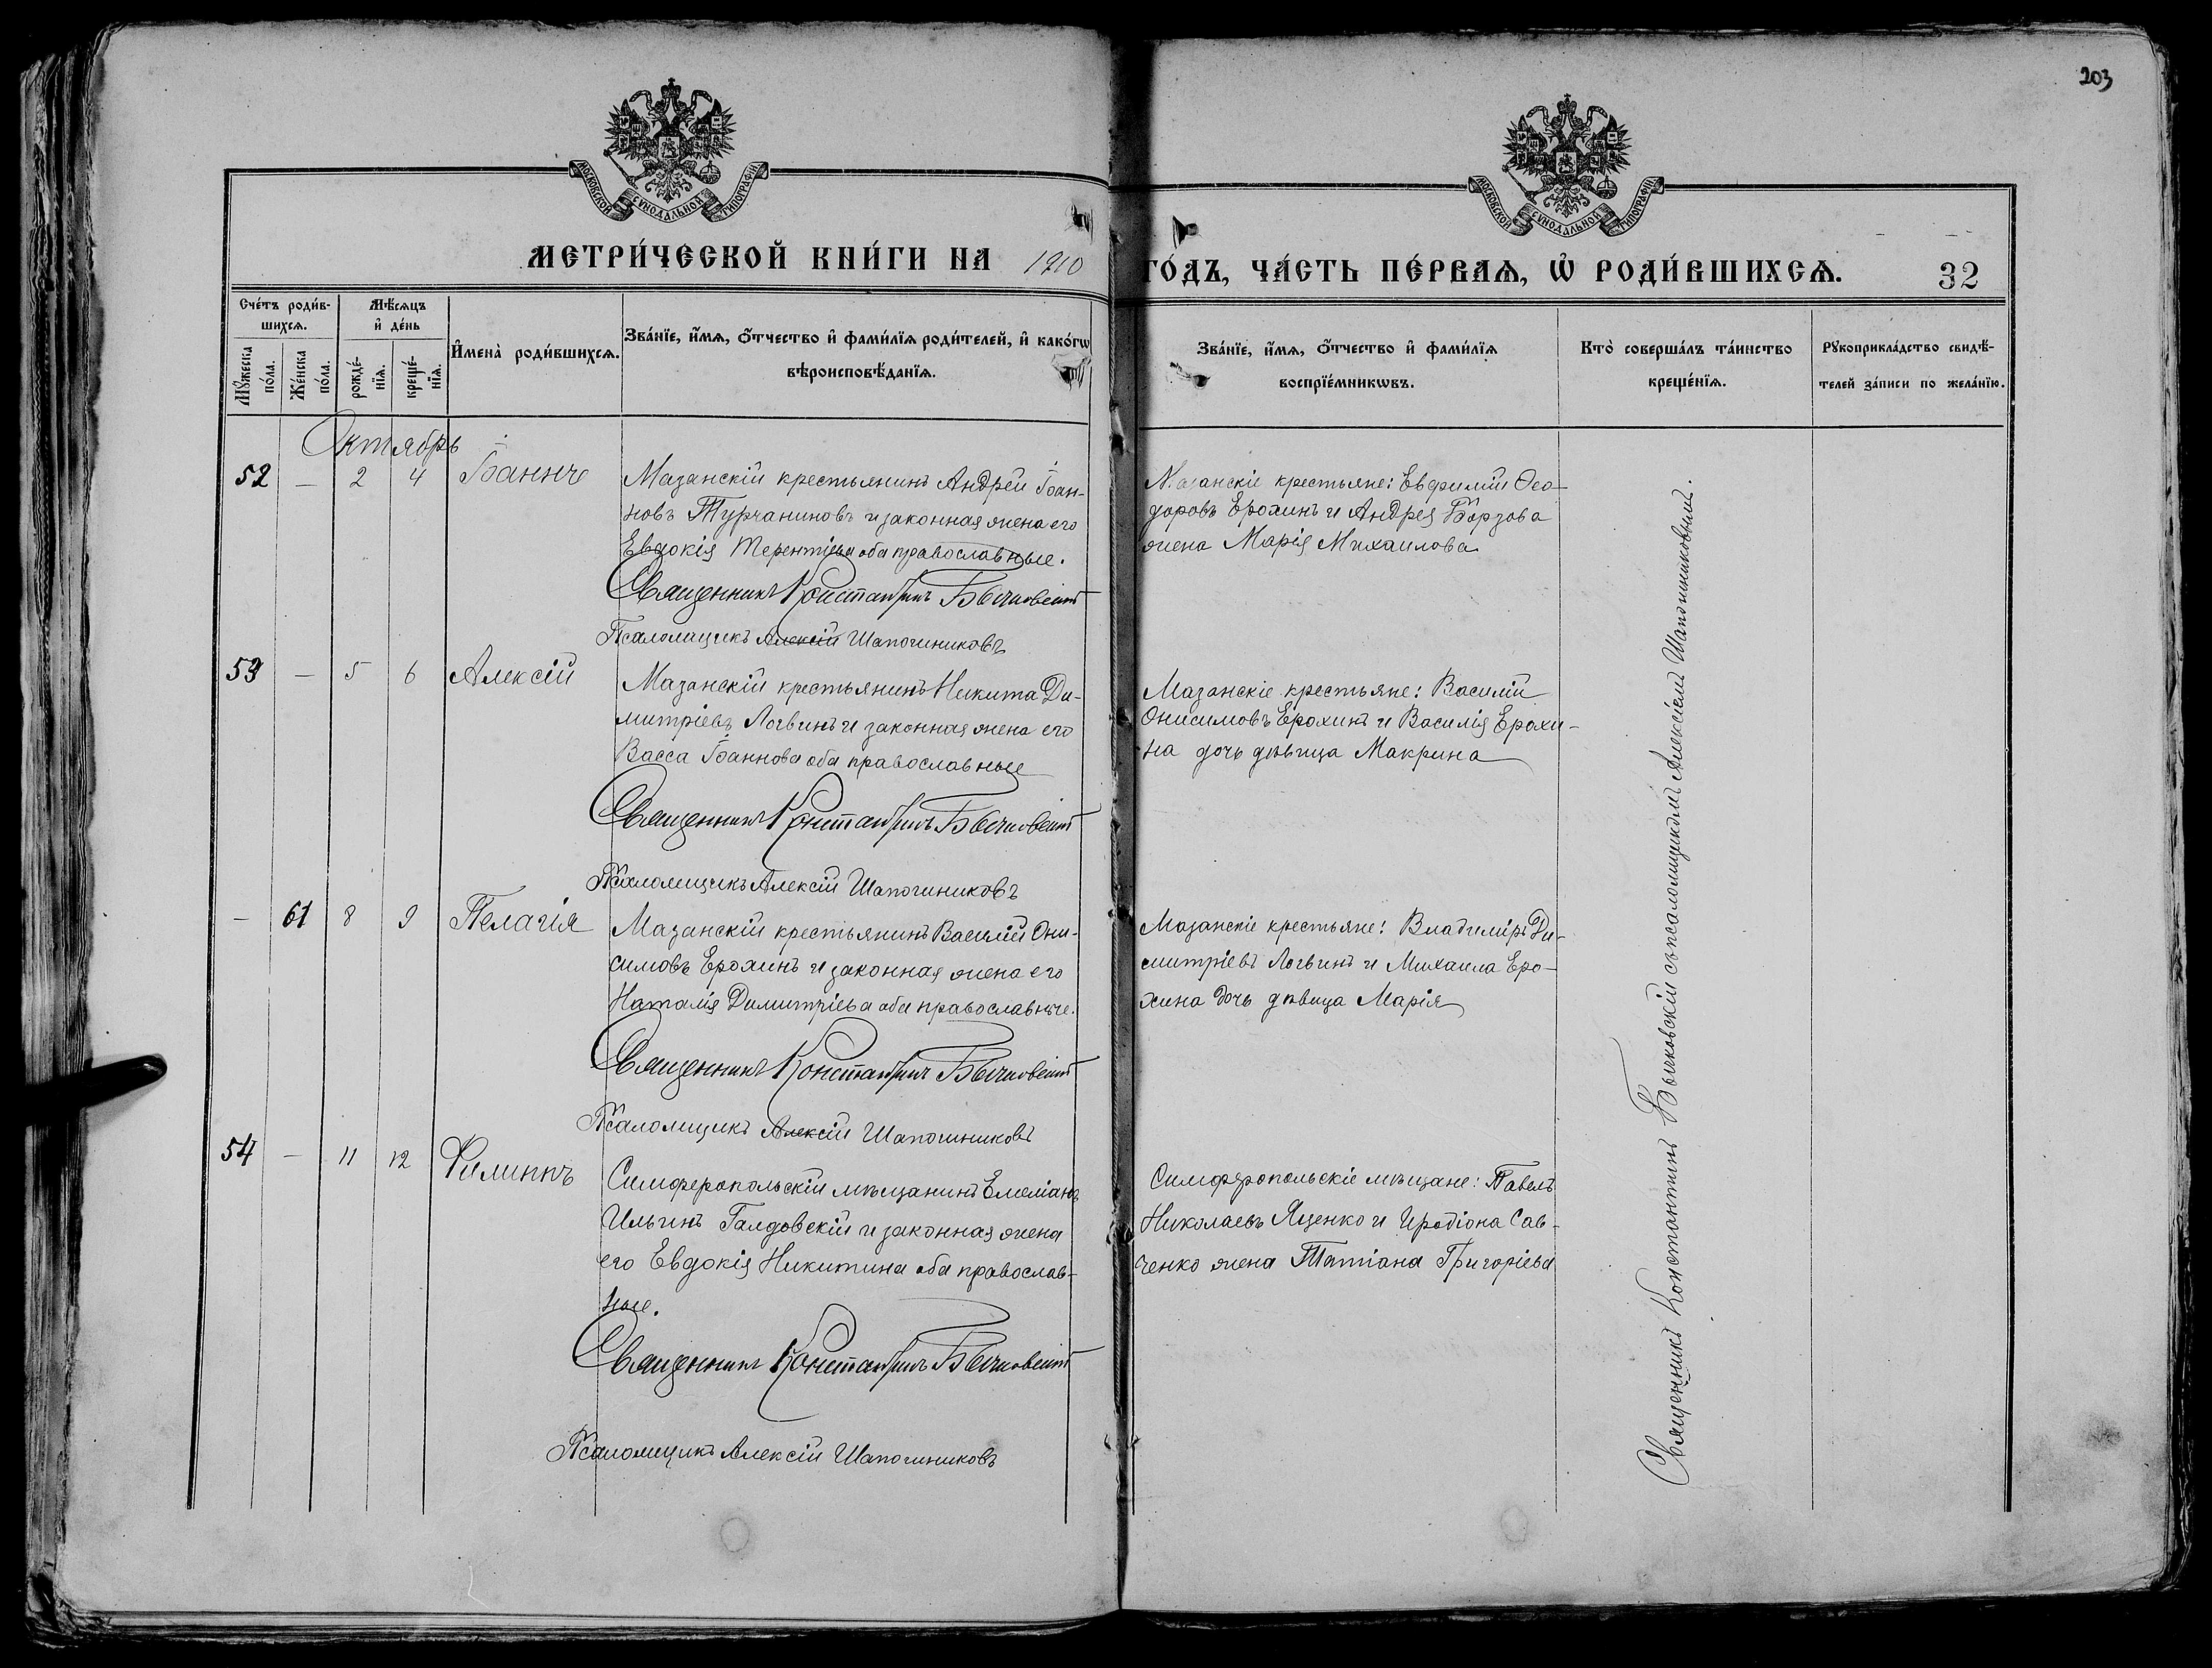 203
МОСКОВСКОЙ СѴНОДАЛЬНОЙ ТИПОГРАФІИ.
МОСКОВСКОЙ СѴНОДАЛЬНОЙ ТИПОГРАФІИ.
МЕТРИ́ЧЕСКОЙ КНИ́ГИ НА 1910 ГО́ДЪ, ЧА́СТЬ ПЕ́РВАѦ, Ѡ҆ РОДИ́ВШИХСѦ. 32
Сче́тъ роди́в-
шихсѧ.
Мꙋ́жеска
по́ла.
Же́нска
по́ла.
Мѣ́сѧцъ
и҆ де́нь
рожде́-
нїѧ.
креще́-
нїѧ.
И҆мена̀ роди́вшихсѧ.
Зва́нїе, и҆́мѧ, ѻ҆́тчество и҆ фами́лїѧ роди́телей, и҆ како́гѡ
вѣроисповѣ́данїѧ.
Зва́нїе, и҆́мѧ, ѻ҆́тчество и҆ фами́лїѧ
воспрїе́мникѡвъ.
Кто̀ соверша́лъ та́инство
креще́нїѧ.
Рꙋкоприкла́дство свидѣ́-
телей за́писи по жела́нїю.
Октябрь
52 — 2 4 Іоаннъ
Мазанскій крестьянинъ Андрей Іоан-
новъ Турчаниновъ и законная жена его
Евдокія Терентіева оба православные.
Священникъ Константинъ Бычковскій
Псаломщикъ Алексій Шапошниковъ
Мазанскіе крестьяне: Евфимій Ѳео-
доровъ Ерохинъ и Андрея Борзова
жена Марія Михаилова
53 — 5 6 Алексій
Мазанскій крестьянинъ Никита Ди-
митріевъ Логвинъ и законная жена его
Васса Іоаннова оба православные
Священникъ Константинъ Бычковскій
Псаломщикъ Алексій Шапошниковъ
Мазанскіе крестьяне: Василій
Онисимовъ Ерохинъ и Василія Ерохи-
на дочь дѣвица Макрина
— 61 8 9 Пелагія
Мазанскій крестьянинъ Василій Они-
симовъ Ерохинъ и законная жена его
Наталія Димитріева оба православные.
Священникъ Константинъ Бычковскій
Псаломщикъ Алексій Шапошниковъ
Мазанскіе крестьяне: Владиміръ Ди-
митріевъ Логвинъ и Михаила Еро-
хина дочь дѣвица Марія
54 — 11 12 Филиппъ
Симферопольскій мѣщанинъ Емеліанъ
Ильинъ Галдовскій и законная жена
его Евдокія Никитина оба православ-
ные.
Священникъ Константинъ Бычковскій
Псаломщикъ Алексій Шапошниковъ
Симферопольскіе мѣщане: Павелъ
Николаевъ Яценко и Иродіона Сав-
ченко жена Татіана Григоріева
Священникъ Константинъ Бычковскій съ псаломщикомъ Алексіемъ Шапошниковымъ.